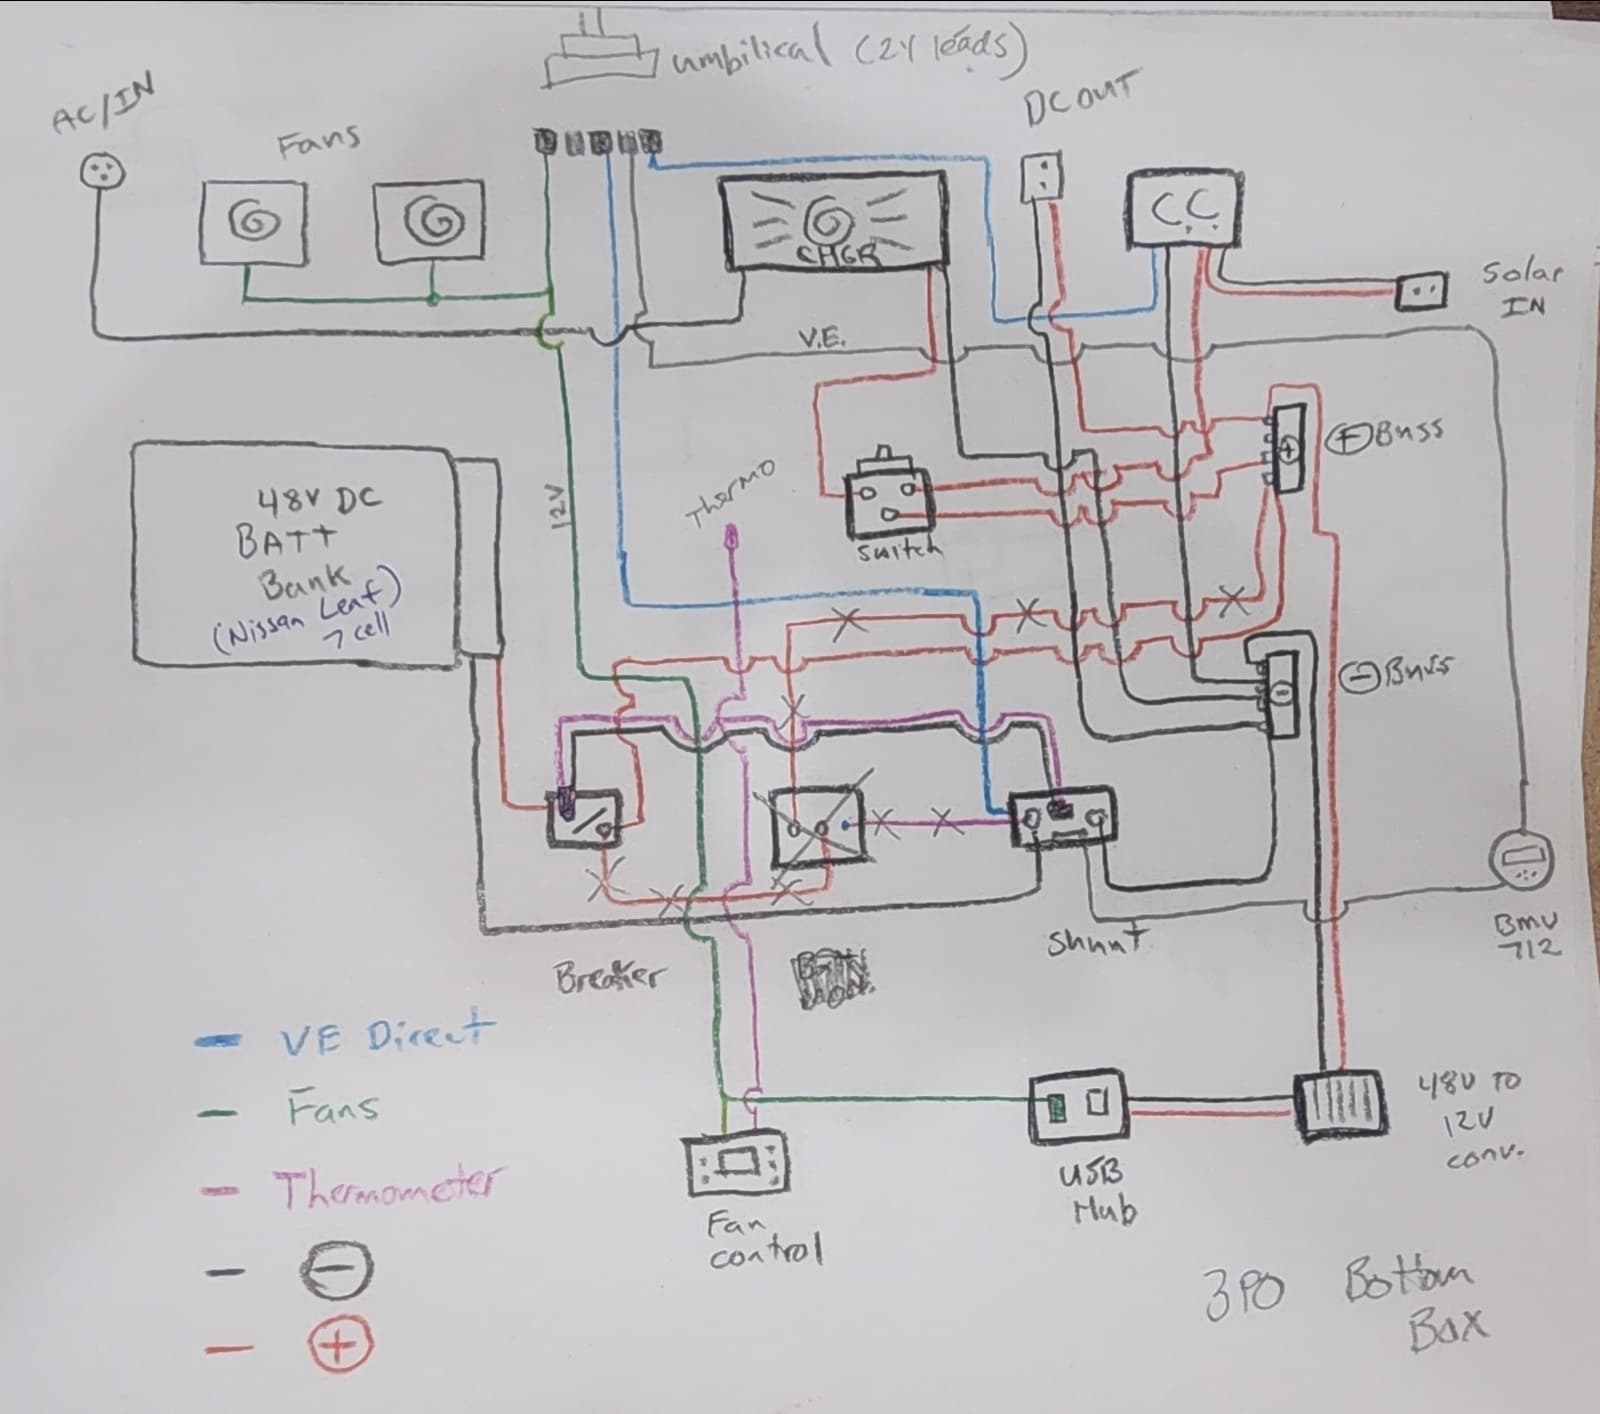 umbilical (24 leads)
AC/IN
Fans
DC OUT
CHGR
C.C.
Solar
IN
V.E.
+ Buss
+
48V DC
BATT
Bank
(Nissan Leaf)
7 cell
12V
Thermo
Switch
- Buss
-
Breaker
Shunt
BMV
712
VE Direct
Fans
Thermometer
-
+
48V TO
12V
conv.
USB
Hub
Fan
control
3PO Bottom
Box